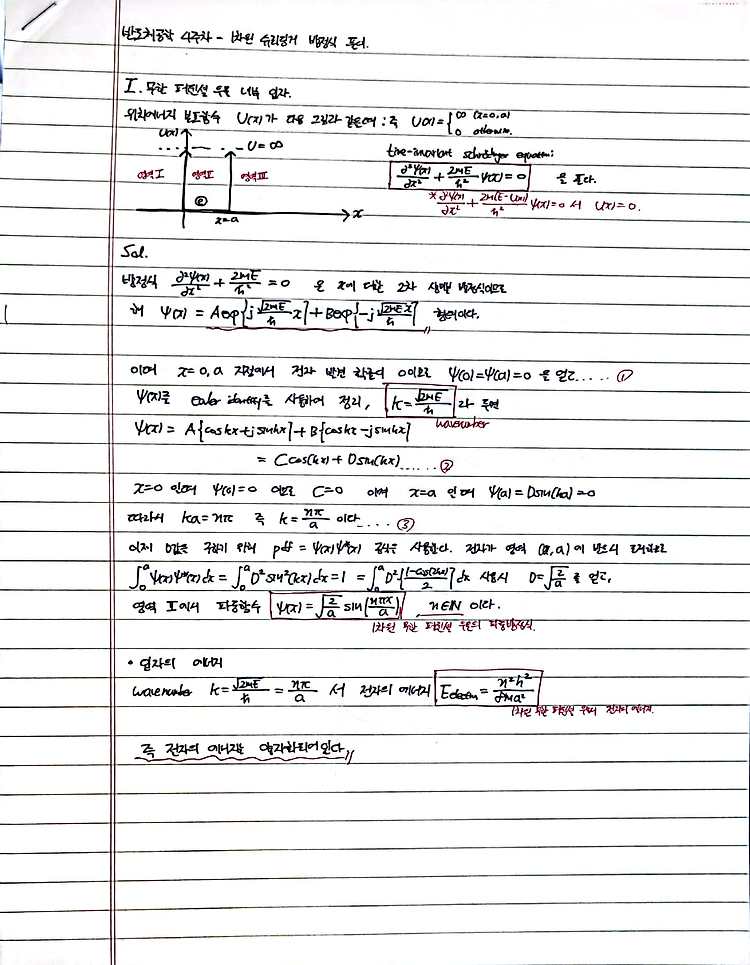 반도체공학 4주차 - 1차원 슈뢰딩거 방정식 풀이.
I. 무한 퍼텐셜 우물 내부 입자.
위치에너지 분포함수 U(x)가 다음 그림과 같은 : 즉 U(x) = { ∞ (x=0,a)
0 otherwise.
U(x)
U=∞
영역 I 영역 II 영역 III
e
x=a x
time-invariant schrödinger equation:
∂²Ψ(x)/∂x² + 2mE/ħ² Ψ(x) = 0 을 푼다.
* ∂²Ψ(x)/∂x² + 2m(E-U(x))/ħ² Ψ(x)=0 서 U(x)=0.
Sol.
방정식 ∂²Ψ(x)/∂x² + 2mE/ħ² = 0 은 x에 대한 2차 상미분 방정식이므로
해 Ψ(x) = A exp{j √2mE/ħ x} + B exp{-j √2mE x/ħ} 형태이다.
이때 x=0, a 지점에서 전자 발견 확률이 0이므로 Ψ(0)=Ψ(a)=0 을 얻고..... ①
Ψ(x)를 euler identity를 사용하여 정리, k = √2mE/ħ 라 두면
wavenumber
Ψ(x) = A{cos kx + j sin kx} + B{cos kx - j sin kx}
= C cos(kx) + D sin(kx)...... ②
x=0 인때 Ψ(0)=0 이므로 C=0 이며 x=a 인때 Ψ(a)=D sin(ka)=0
따라서 ka=nπ 즉 k = nπ/a 이다..... ③
이제 D값을 구하기 위해 pdf = Ψ(x)Ψ*(x) 공식을 사용한다. 전자가 영역 (0,a)에 반드시 존재하므로
∫₀ᵃ Ψ(x)Ψ*(x)dx = ∫₀ᵃ D² sin²(kx)dx = 1 = ∫₀ᵃ D² {1-cos(2kx)/2} dx 사용시 D=√2/a 를 얻고,
영역 II에서 파동함수 Ψ(x) = √2/a sin(nπx/a), n∈ℕ 이다.
1차원 무한 퍼텐셜 우물의 파동방정식.
• 입자의 에너지
wavenumber k = √2mE/ħ = nπ/a 서 전자의 에너지 E = n²h²/8ma²
1차원 무한 퍼텐셜 우물서 전자의 에너지.
즉 전자의 에너지는 양자화되어있다.